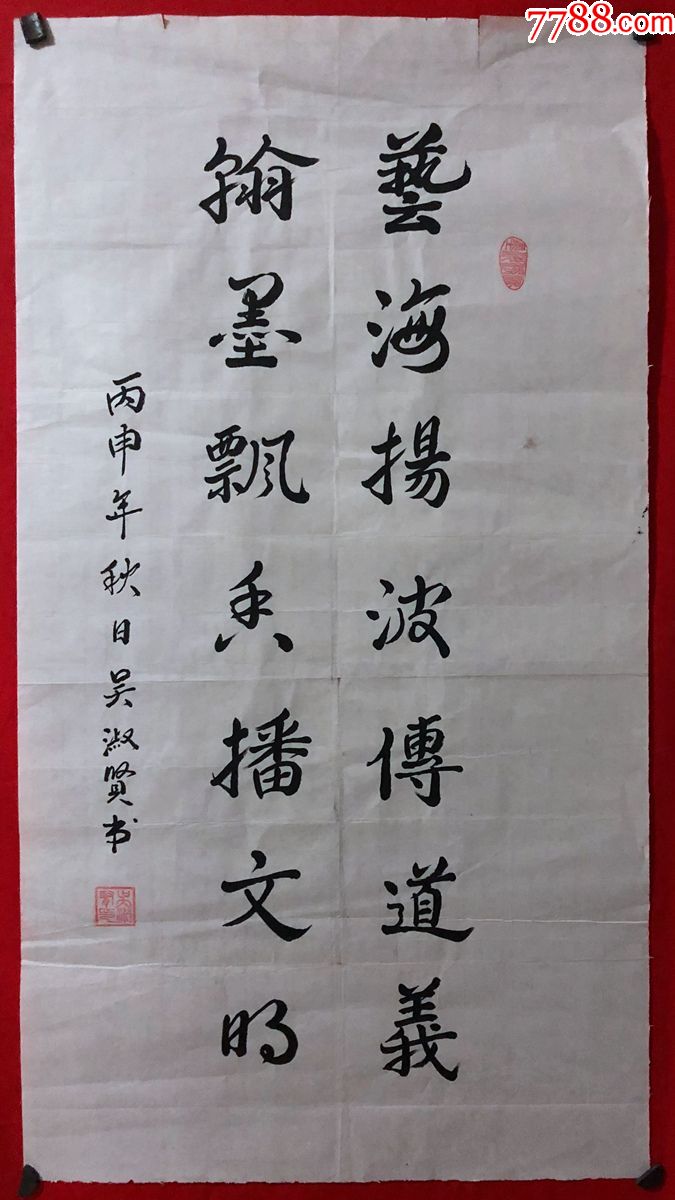 藝海揚波傳道義
翰墨飄香播文明
丙申年秋日吴淑賢书
7788.com